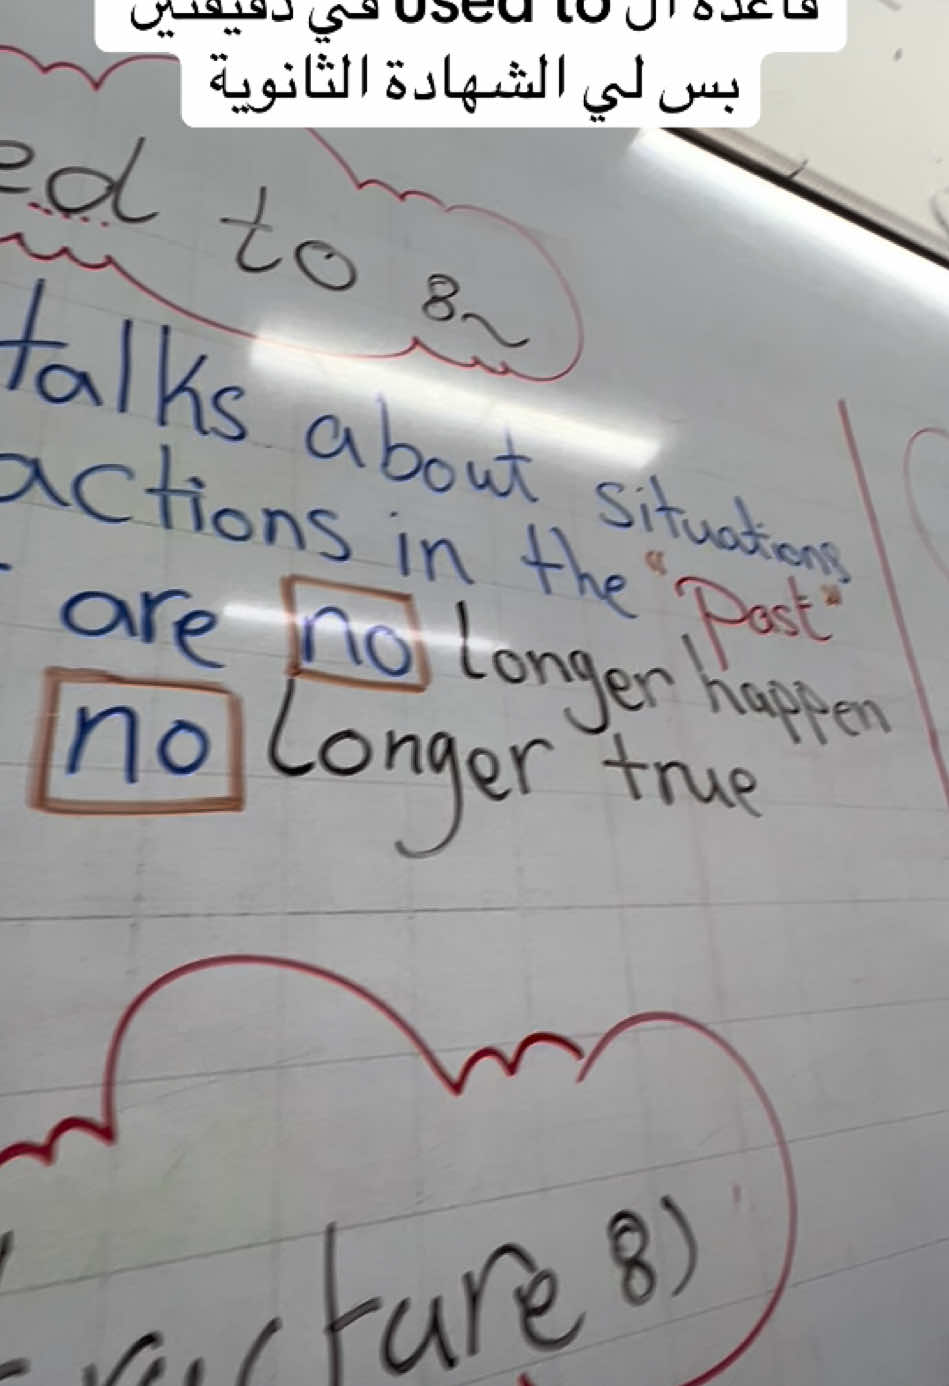 قاعدة ال used to في دقيقتين
بس لي الشهادة الثانوية
ed to 8~
talks about situations
actions in the "Past"
are no longer happen
no longer true
ructure 8)